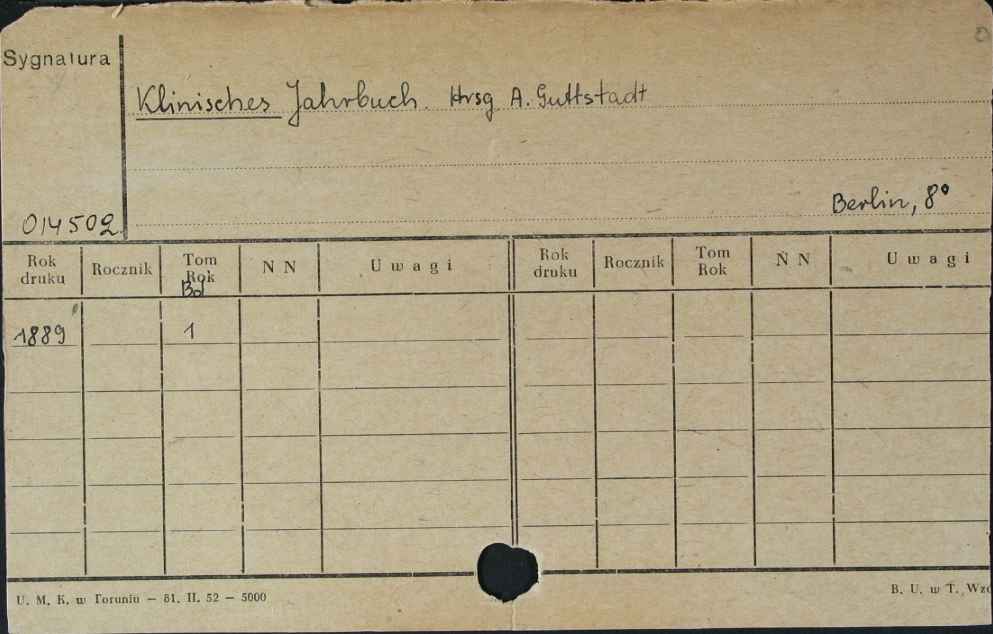 Sygnatura
Klinisches Jahrbuch. Hrsg A. Guttstadt
Berlin, 8°
014502
Rok druku Rocznik Tom Rok Bd N N Uwagi Rok druku Rocznik Tom Rok N N Uwagi
1889 1
U. M. K. w Toruniu — 61. II. 52 — 5000
B. U. w T. Wzo